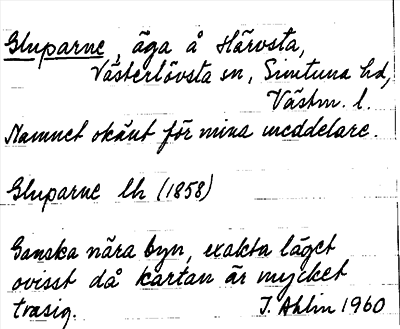 Gluparne, äga å Härvsta,
Västerlövsta sn, Simtuna hd,
Västm. l.
Namnet okänt för mina meddelare.
Gluparne lh (1858)
Ganska nära byn, exakta läget
ovisst då kartan är mycket
trasig. I. Ahlm 1960